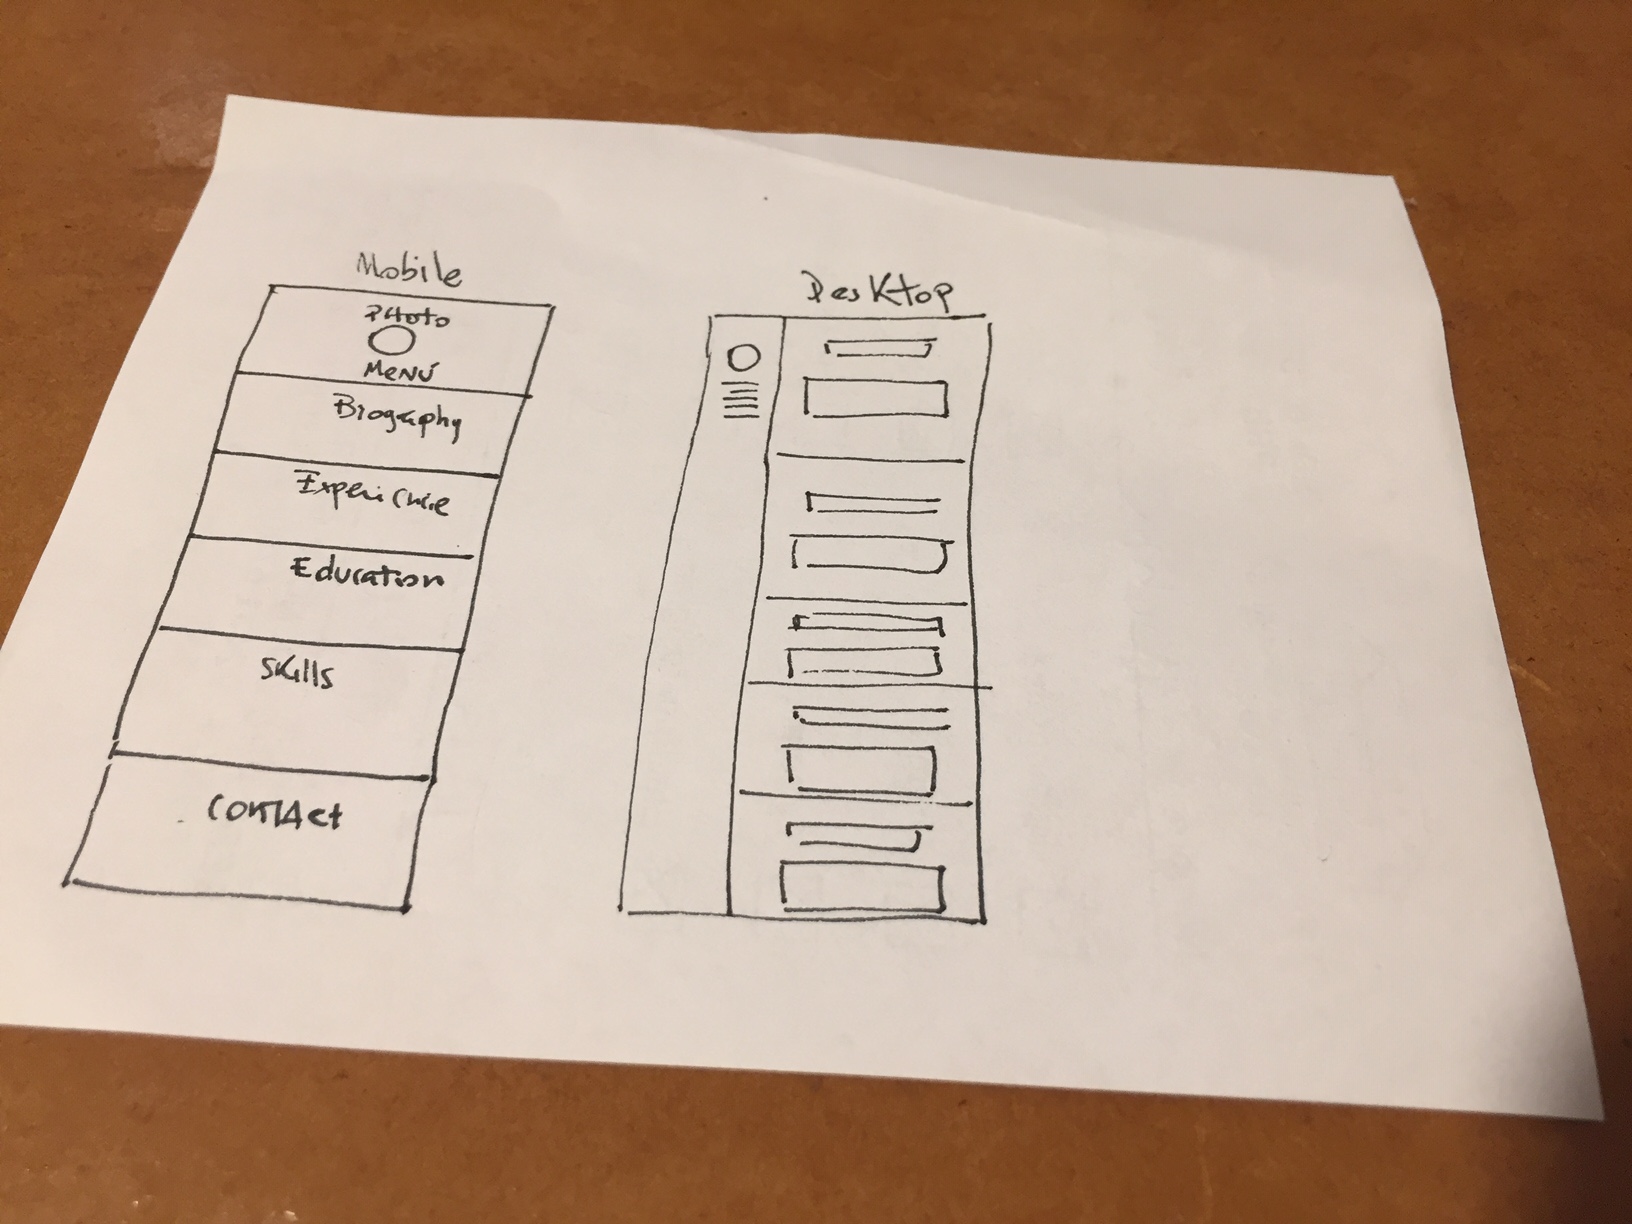 Mobile
PHoto
Menú
Biography
Experience
Education
Skills
Contact
Desktop